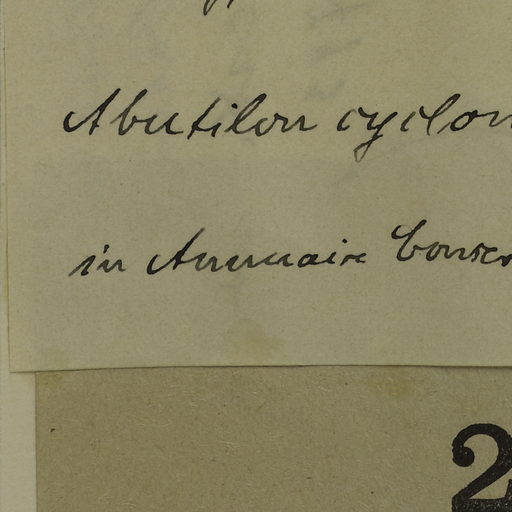 Abutilon cyclon
in Annuaire Conser
2